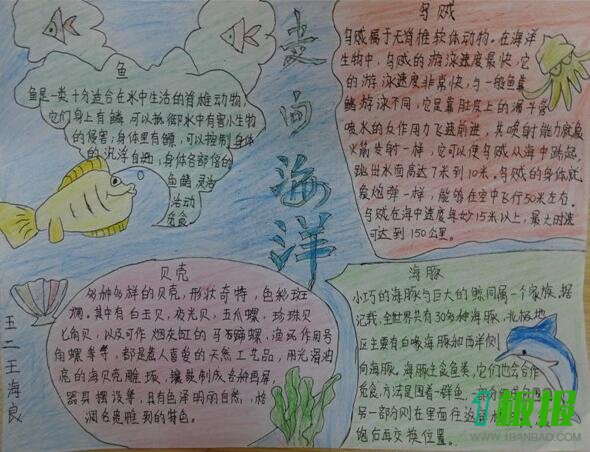 走向海洋
鱼
鱼是一类十分适合在水中生活的脊椎动物,
它们身上有鳞,可以抵御水中有害小生物
的侵害;身体里有鳔,可以控制身体
的沉浮自由;身体各部位的
鱼鳍灵活
活动
觅食
乌贼
乌贼属于无脊椎软体动物。在海洋
生物中,乌贼的游泳速度最快,它
的游泳速度非常快,与一般鱼靠
鳍游泳不同,它是靠肚皮上的漏斗管
喷水的反作用力飞速前进,其喷射能力就像
火箭发射一样,它可以使乌贼从海中跃起,
跳出水面高达7米到10米。乌贼的身体就
像炮弹一样,能够在空中飞行50米左右。
乌贼在海中速度每秒15米以上,最大时速
可达到150公里。
贝壳
多种多样的贝壳,形状奇特,色彩斑
斓。其中有白玉贝,夜光贝,五爪螺,珍珠贝
七角贝,以及可作烟灰缸的马蹄蹄螺,渔民作用号
角螺等等,都是惹人喜爱的天然工艺品,用光滑油
亮的海贝壳雕琢,镶嵌制成各种画屏,
器具摆设等,具有色泽明丽自然,
润名贵雕刻的特色。
海豚
小巧的海豚与巨大的鲸同属一个家族。据
记载,全世界共有30多种海豚,北极地
区主要有白喙海豚如西洋侧
向海豚。海豚主食鱼类,它们也会合作
觅食,方法是围着一群鱼,
另一部分则在里面
饱后再交换位置。
五二王海良
板报
WWW.1BANBAO.COM